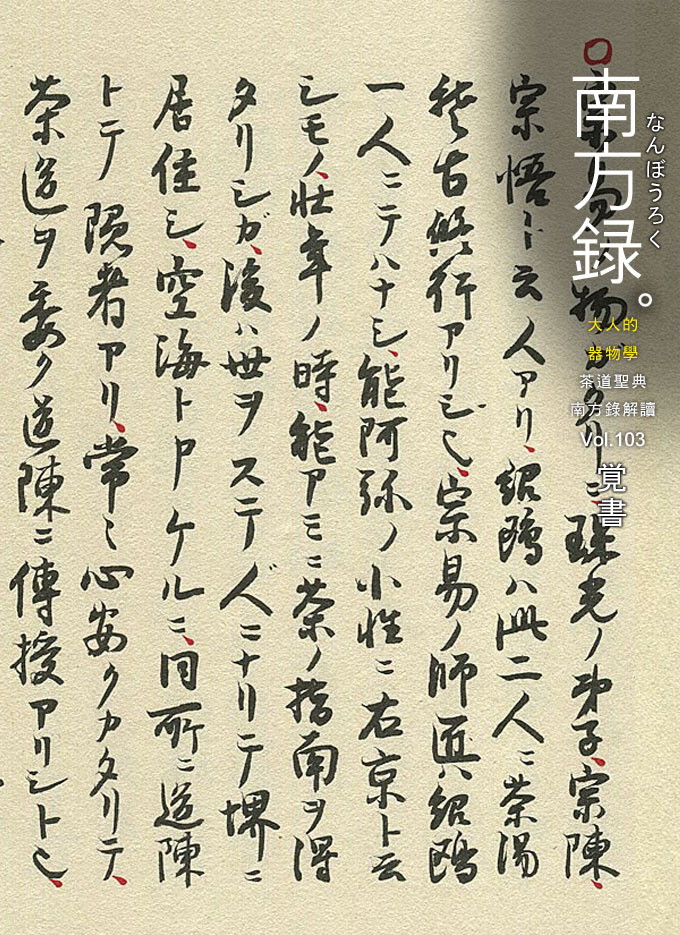 南方録。
なんぼうろく
大人的
器物學
茶道聖典
南方錄解讀
Vol.103
覚書
物ガタリニ、珠光ノ弟子、宗陳、
宗悟ト云人アリ、紹鴎ハ此二人ニ茶湯
稽古修行アリシ也、宗易ノ師匠ハ紹鴎
一人ニテハナシ、能阿弥ノ小性ニ右京ト云
シモノ、壮年ノ時、能アミニ茶ノ指南ヲ得
タリシガ、後ハ世ヲステ人ニナリテ堺ニ
居住シ、空海ト申ケルニ、同所ニ道陳
トテ隠者アリ、常々心安クカタリテ、
茶道ヲ委ク道陳ニ傳授アリシト也、